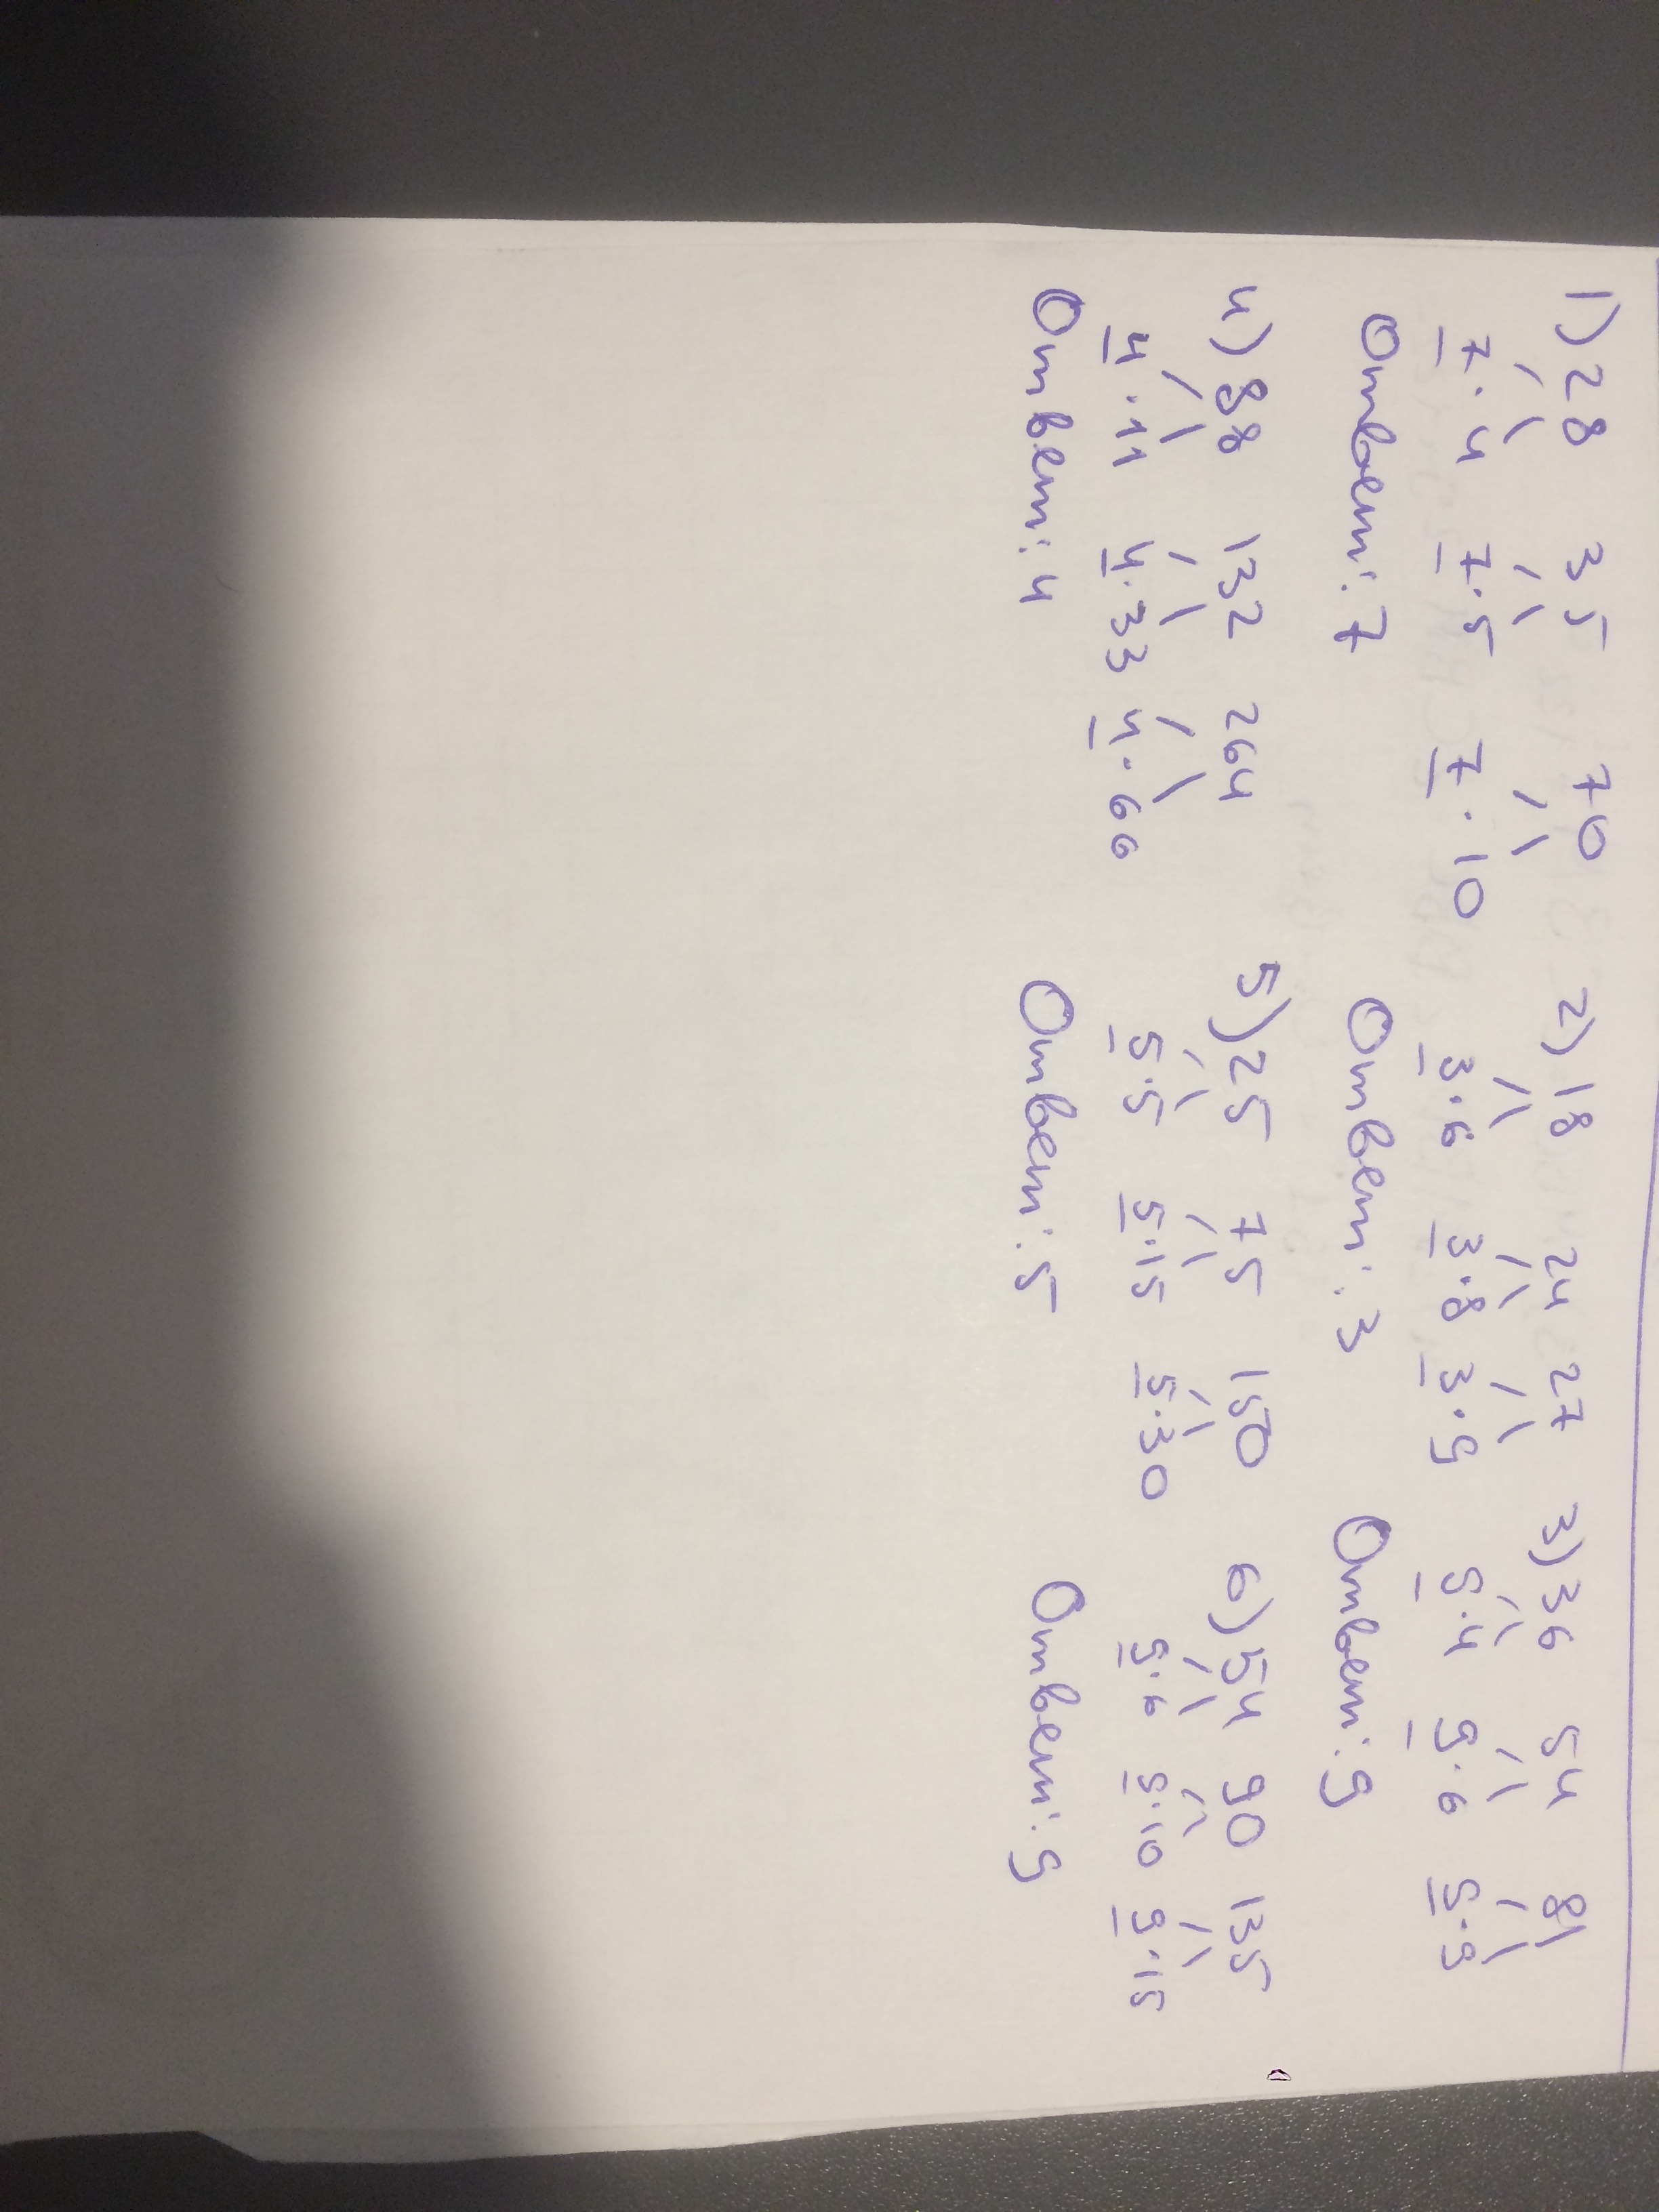 1) 28 35 70 2) 18 24 27 3) 36 54 81
7·4 7·5 7·10 3·6 3·8 3·9 9·4 9·6 9·9
Ответ: 7 Ответ: 3 Ответ: 9
4) 88 132 264 5) 25 75 150 6) 54 90 135
4·11 4·33 4·66 5·5 5·15 5·30 9·6 9·10 9·15
Ответ: 4 Ответ: 5 Ответ: 9